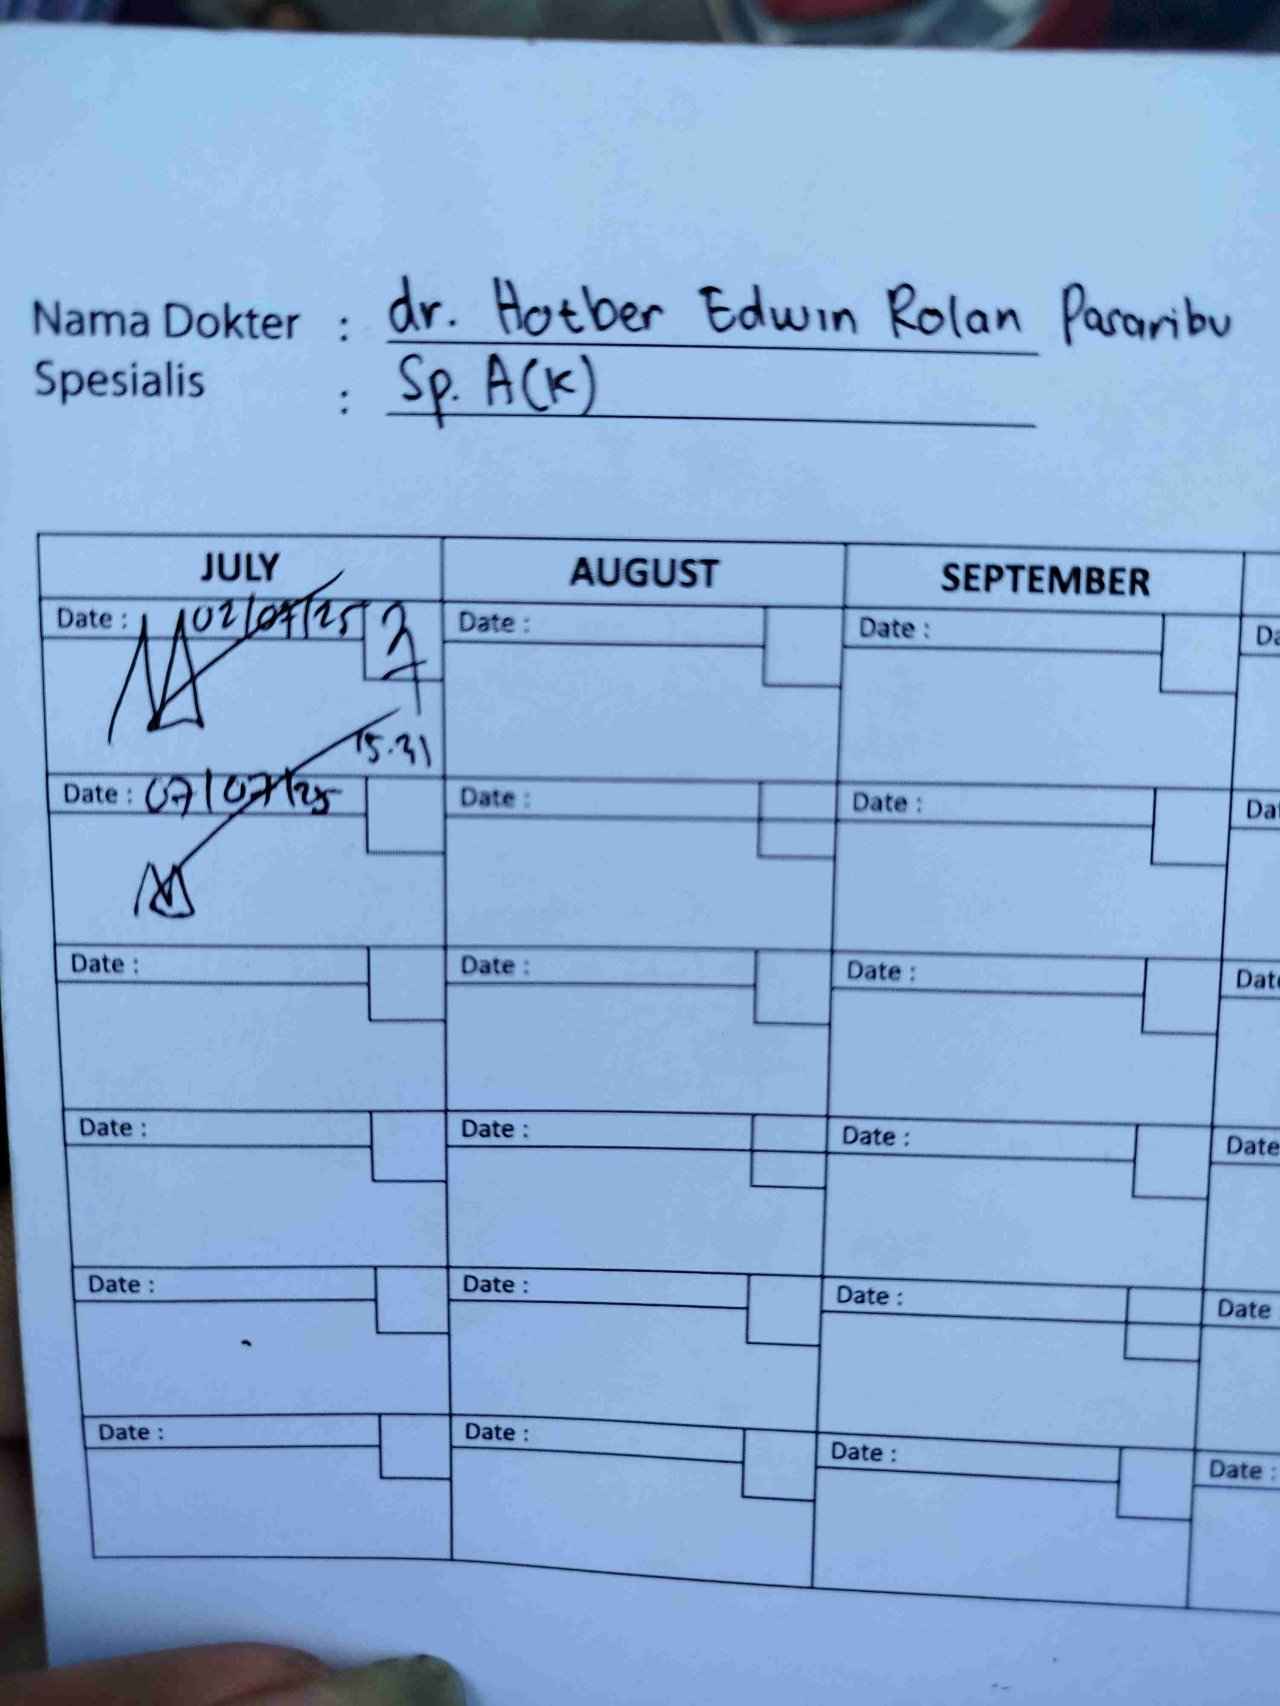 Nama Dokter : dr. Hotber Edwin Rolan Pasaribu
Spesialis : Sp. A(K)
JULY AUGUST SEPTEMBER
Date : 02/07/25 Date : Date : Da
15.31
Date : 07/07/25 Date : Date : Dat
Date : Date : Date : Date
Date : Date : Date : Date
Date : Date : Date : Date
Date : Date : Date : Date :